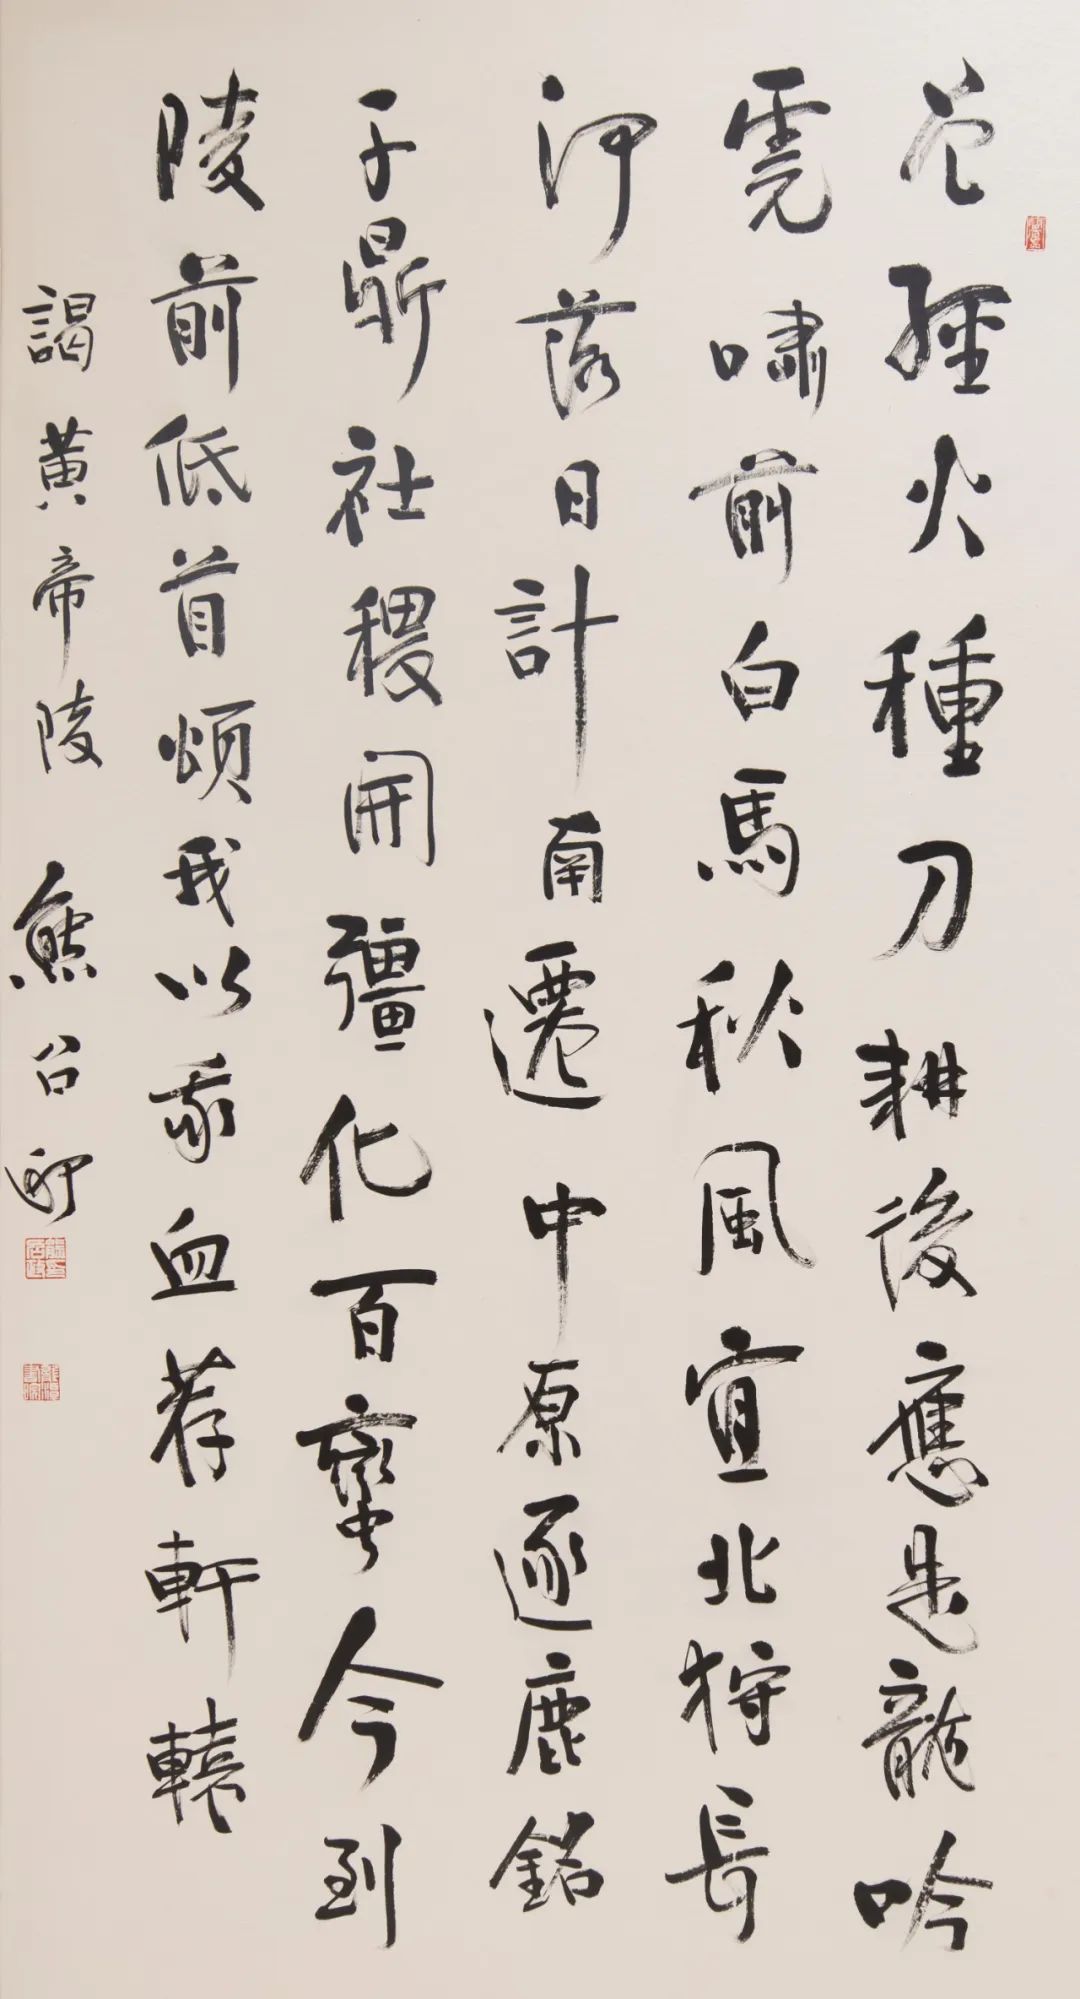 曾經火種刀耕後應是龍吟
虎嘯前白馬秋風宜北狩長
河落日計南遷中原逐鹿銘
于鼎社稷開疆化百蠻今到
陵前低首頌我以我血荐軒轅
謁黄帝陵 熊召政